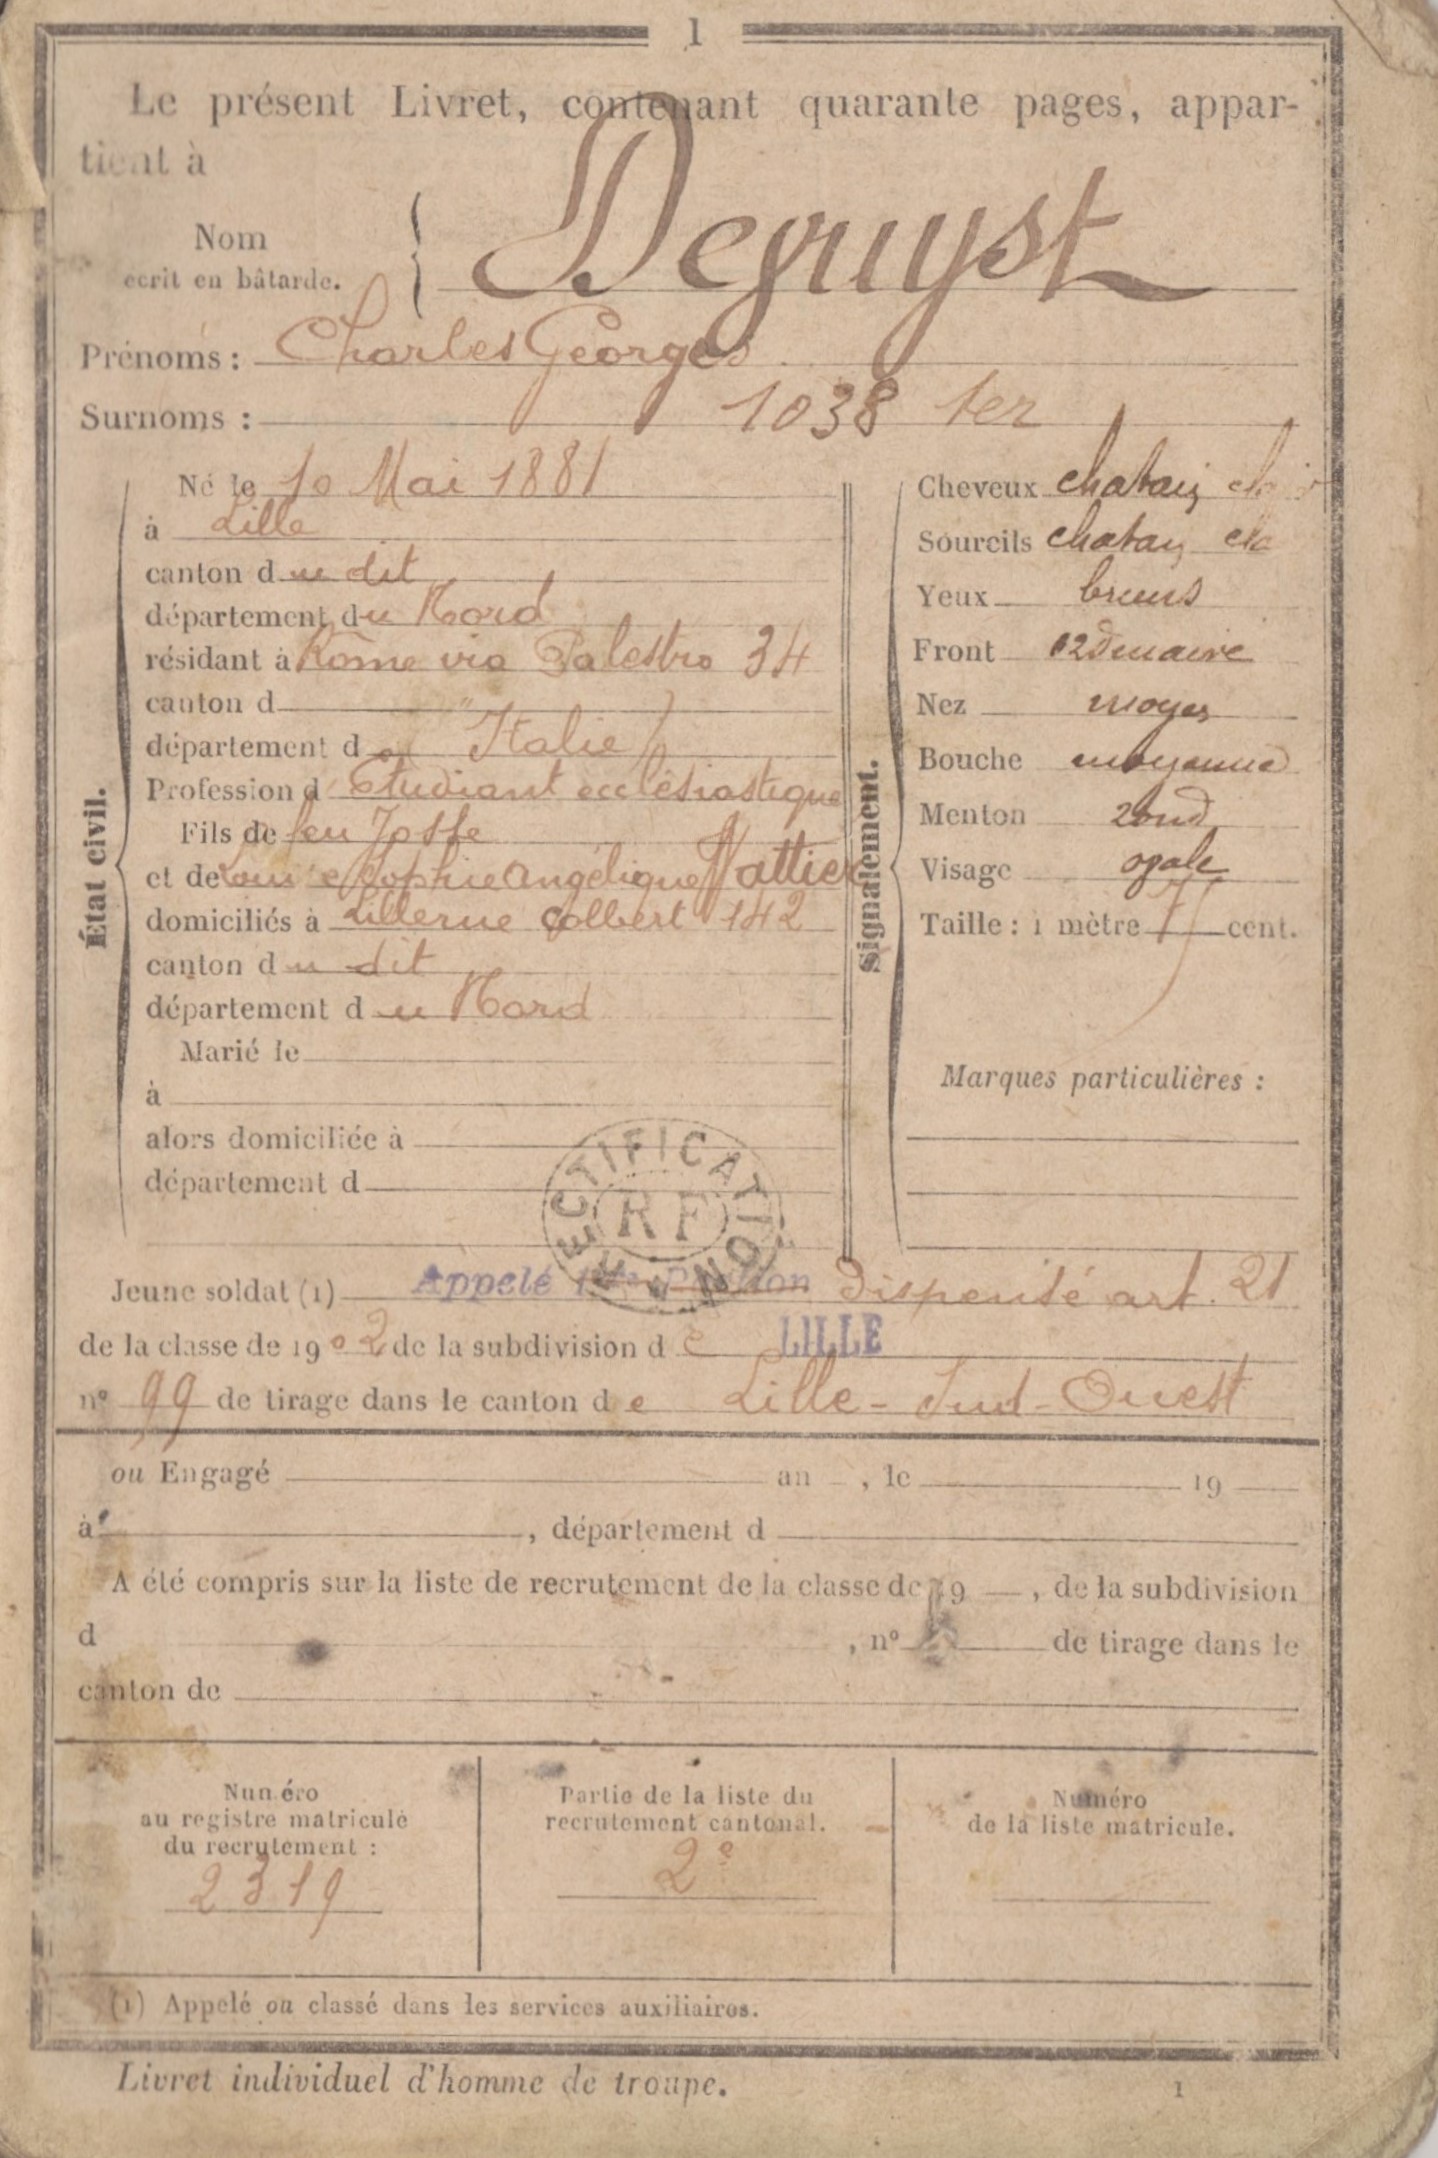 1
Le présent Livret, contenant quarante pages, appar-
tient à
Nom
écrit en bâtarde.
Degruyst
Prénoms : Charles Georges
Surnoms : 1038 1er
État civil.
Né le 10 Mai 1881
à Lille
canton du dit
département du Nord
résidant à Rome via Palestro 34
canton d "
département d Italie
Profession d' Étudiant ecclésiastique
Fils de feu Josse
et de Louise Sophie Angélique Wattier
domiciliés à Lille rue Colbert 142
canton du dit
département du Nord
Marié le
à
alors domiciliée à
département d
Signalement.
Cheveux chatain clair
Sourcils chatain cla
Yeux bruns
Front ordinaire
Nez moyen
Bouche moyenne
Menton rond
Visage ovale
Taille : 1 mètre 71 cent.
Marques particulières :
RECTIFICATION
RF
Jeune soldat (1) Appelé Dispensé art. 21
de la classe de 1902 de la subdivision de LILLE
n° 99 de tirage dans le canton de Lille-Sud-Ouest
ou Engagé an , le 19
à , département d
A été compris sur la liste de recrutement de la classe de 19 , de la subdivision
d , n° de tirage dans le
canton de
Numéro
au registre matricule
du recrutement :
2319
Partie de la liste du
recrutement cantonal.
2e
Numéro
de la liste matricule.
(1) Appelé ou classé dans les services auxiliaires.
Livret individuel d'homme de troupe.
1